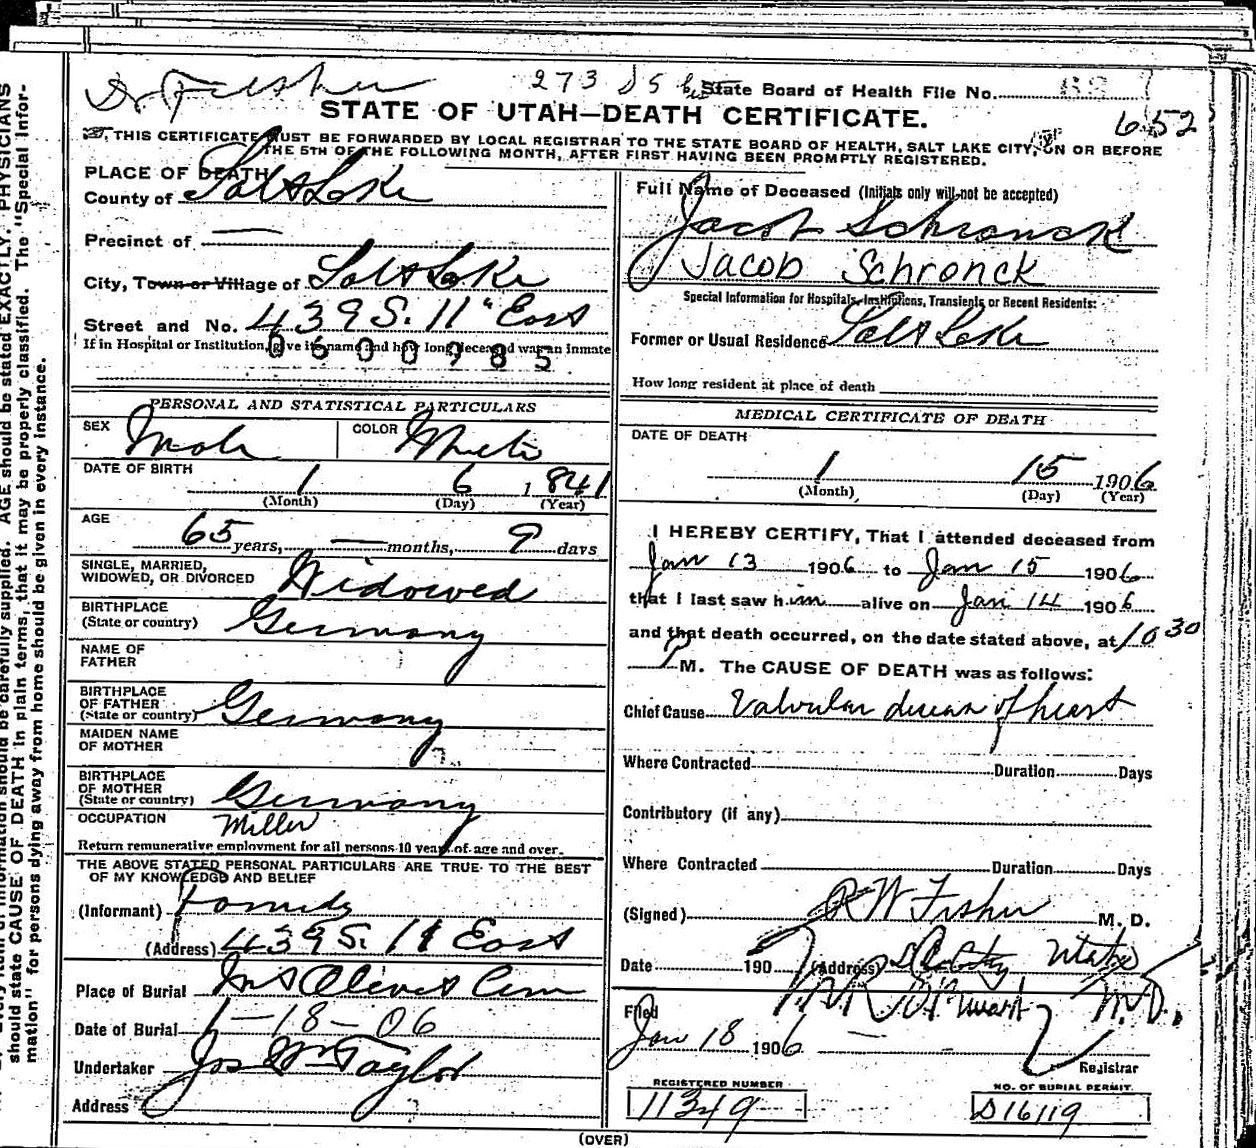 Dr Fisher 273 D 5 State Board of Health File No.
STATE OF UTAH—DEATH CERTIFICATE.
652
THIS CERTIFICATE MUST BE FORWARDED BY LOCAL REGISTRAR TO THE STATE BOARD OF HEALTH, SALT LAKE CITY, ON OR BEFORE
THE 5TH OF THE FOLLOWING MONTH, AFTER FIRST HAVING BEEN PROMPTLY REGISTERED.
PLACE OF DEATH
County of Salt Lake
Precinct of —
City, Town or Village of Salt Lake
Street and No. 439 S. 11" East
If in Hospital or Institution, give its name and how long deceased was an inmate
0600985
PERSONAL AND STATISTICAL PARTICULARS
SEX Male COLOR White
DATE OF BIRTH
1 6 1841
(Month) (Day) (Year)
AGE
65 years, — months, 9 days
SINGLE, MARRIED,
WIDOWED, OR DIVORCED Widowed
BIRTHPLACE
(State or country) Germany
NAME OF
FATHER
BIRTHPLACE
OF FATHER
(State or country) Germany
MAIDEN NAME
OF MOTHER
BIRTHPLACE
OF MOTHER
(State or country) Germany
OCCUPATION Miller
Return remunerative employment for all persons 10 years of age and over.
THE ABOVE STATED PERSONAL PARTICULARS ARE TRUE TO THE BEST
OF MY KNOWLEDGE AND BELIEF
(Informant) Family
(Address) 439 S. 11 East
Place of Burial Mt Olivet Cem
Date of Burial 1-18-06
Undertaker Jos Wm Taylor
Address
Full Name of Deceased (Initials only will not be accepted)
Jacob Schronck
Jacob Schronck
Special Information for Hospitals, Institutions, Transients or Recent Residents:
Former or Usual Residence Salt Lake
How long resident at place of death
MEDICAL CERTIFICATE OF DEATH
DATE OF DEATH
1 15 1906
(Month) (Day) (Year)
I HEREBY CERTIFY, That I attended deceased from
Jan 13 1906 to Jan 15 1906
that I last saw him alive on Jan 14 1906
and that death occurred, on the date stated above, at 10 30
P M. The CAUSE OF DEATH was as follows:
Chief Cause Valvular disease of heart
Where Contracted Duration Days
Contributory (if any)
Where Contracted Duration Days
(Signed) R W Fisher M. D.
Date 190 (Address) S L City Utah
Filed M.D.
Jan 18 1906 —
Registrar
REGISTERED NUMBER
11349
NO. OF BURIAL PERMIT.
D16119
(OVER)
should state CAUSE OF DEATH in plain terms, that it may be properly classified. The "Special Infor-
mation" for persons dying away from home should be given in every instance.